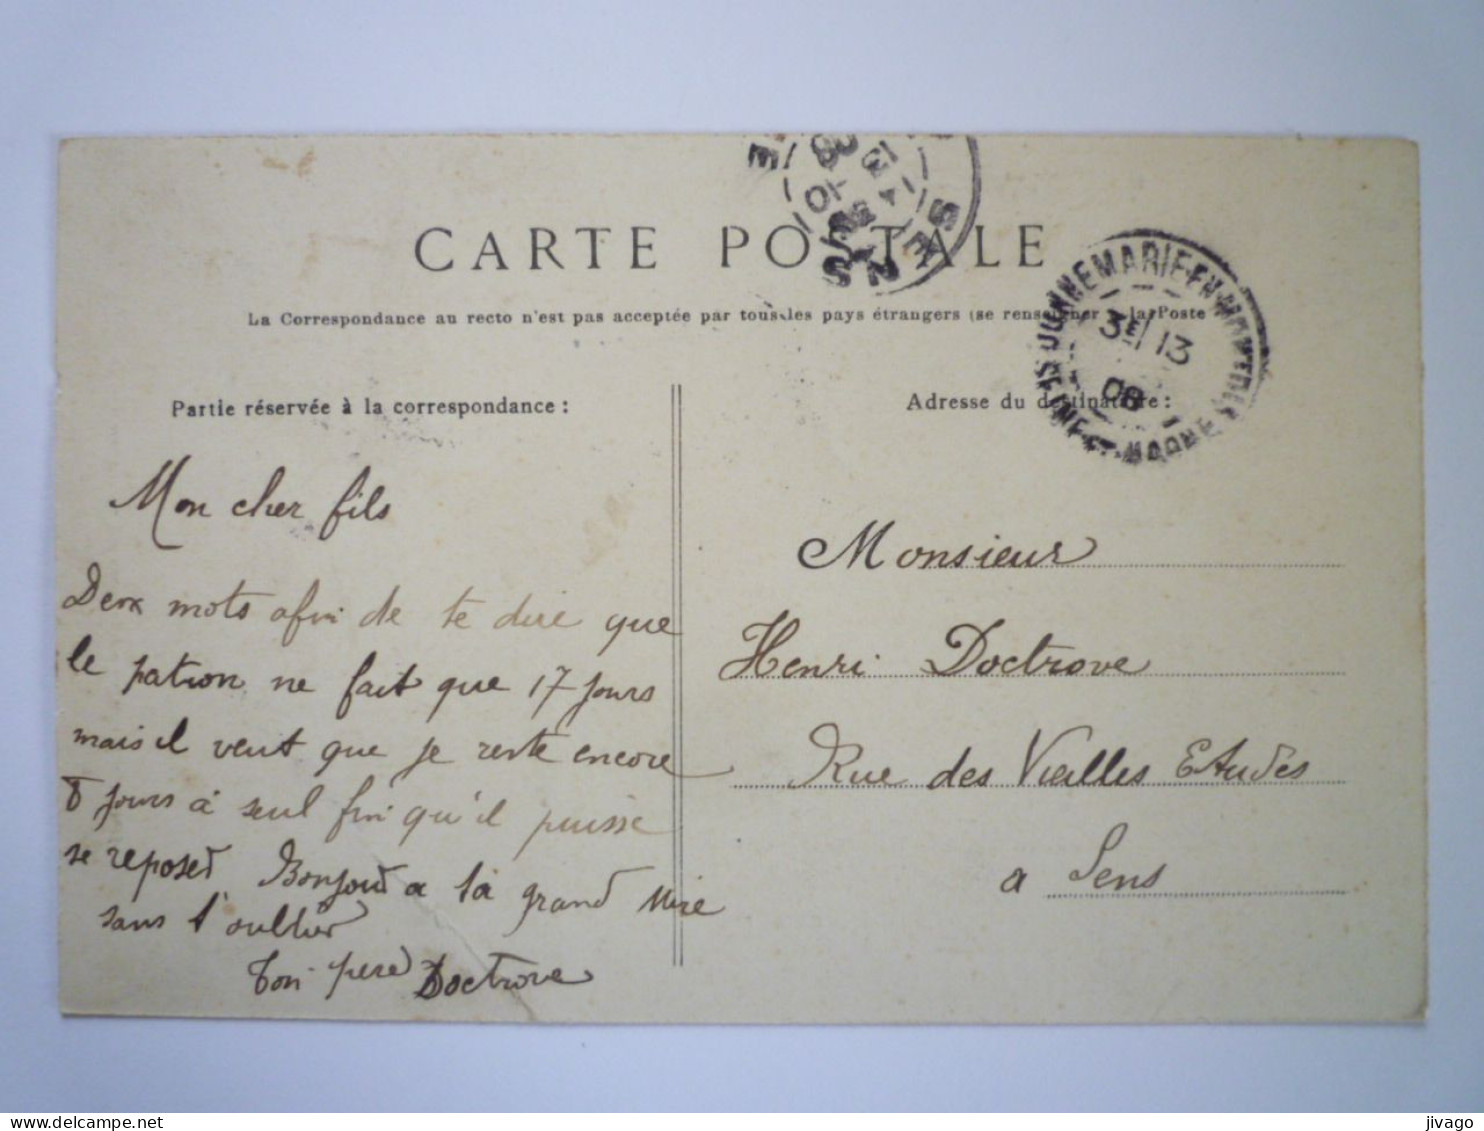 CARTE POSTALE
La Correspondance au recto n'est pas acceptée par tous les pays étrangers (se renseigner à la Poste
Partie réservée à la correspondance :
Adresse du destinataire :
DONNEMARIE-EN-MONTOIS
SEINE-ET-MARNE
13
08
SENS
Mon cher fils
Deux mots afin de te dire que
le patron ne fait que 17 jours
mais il veut que je reste encore
8 jours à seul fin qu'il puisse
se reposer Bonjour a ta grand mère
sans t'oublier
Ton père Doctrove
Monsieur
Henri Doctrove
Rue des Vieilles Etudes
a Sens
jivago